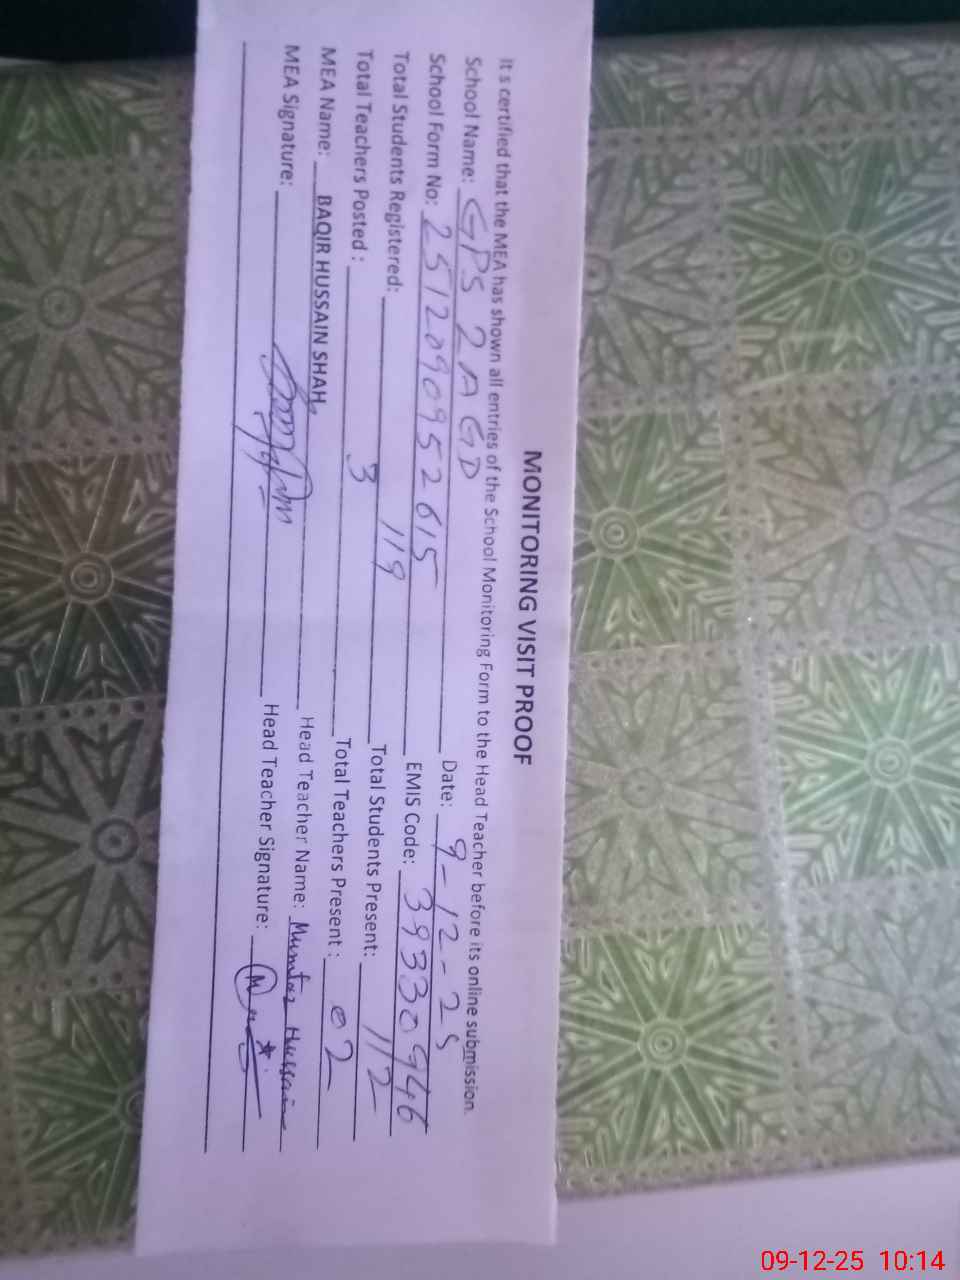 MONITORING VISIT PROOF
It s certified that the MEA has shown all entries of the School Monitoring Form to the Head Teacher before its online submission.
School Name: GPS 2 AGD Date: 9-12-25
School Form No: 2512090952615 EMIS Code: 39330946
Total Students Registered: 119 Total Students Present: 112
Total Teachers Posted : 3 Total Teachers Present : 02
MEA Name: BAQIR HUSSAIN SHAH Head Teacher Name: Mumtaz Hussain
MEA Signature: Head Teacher Signature:
09-12-25 10:14